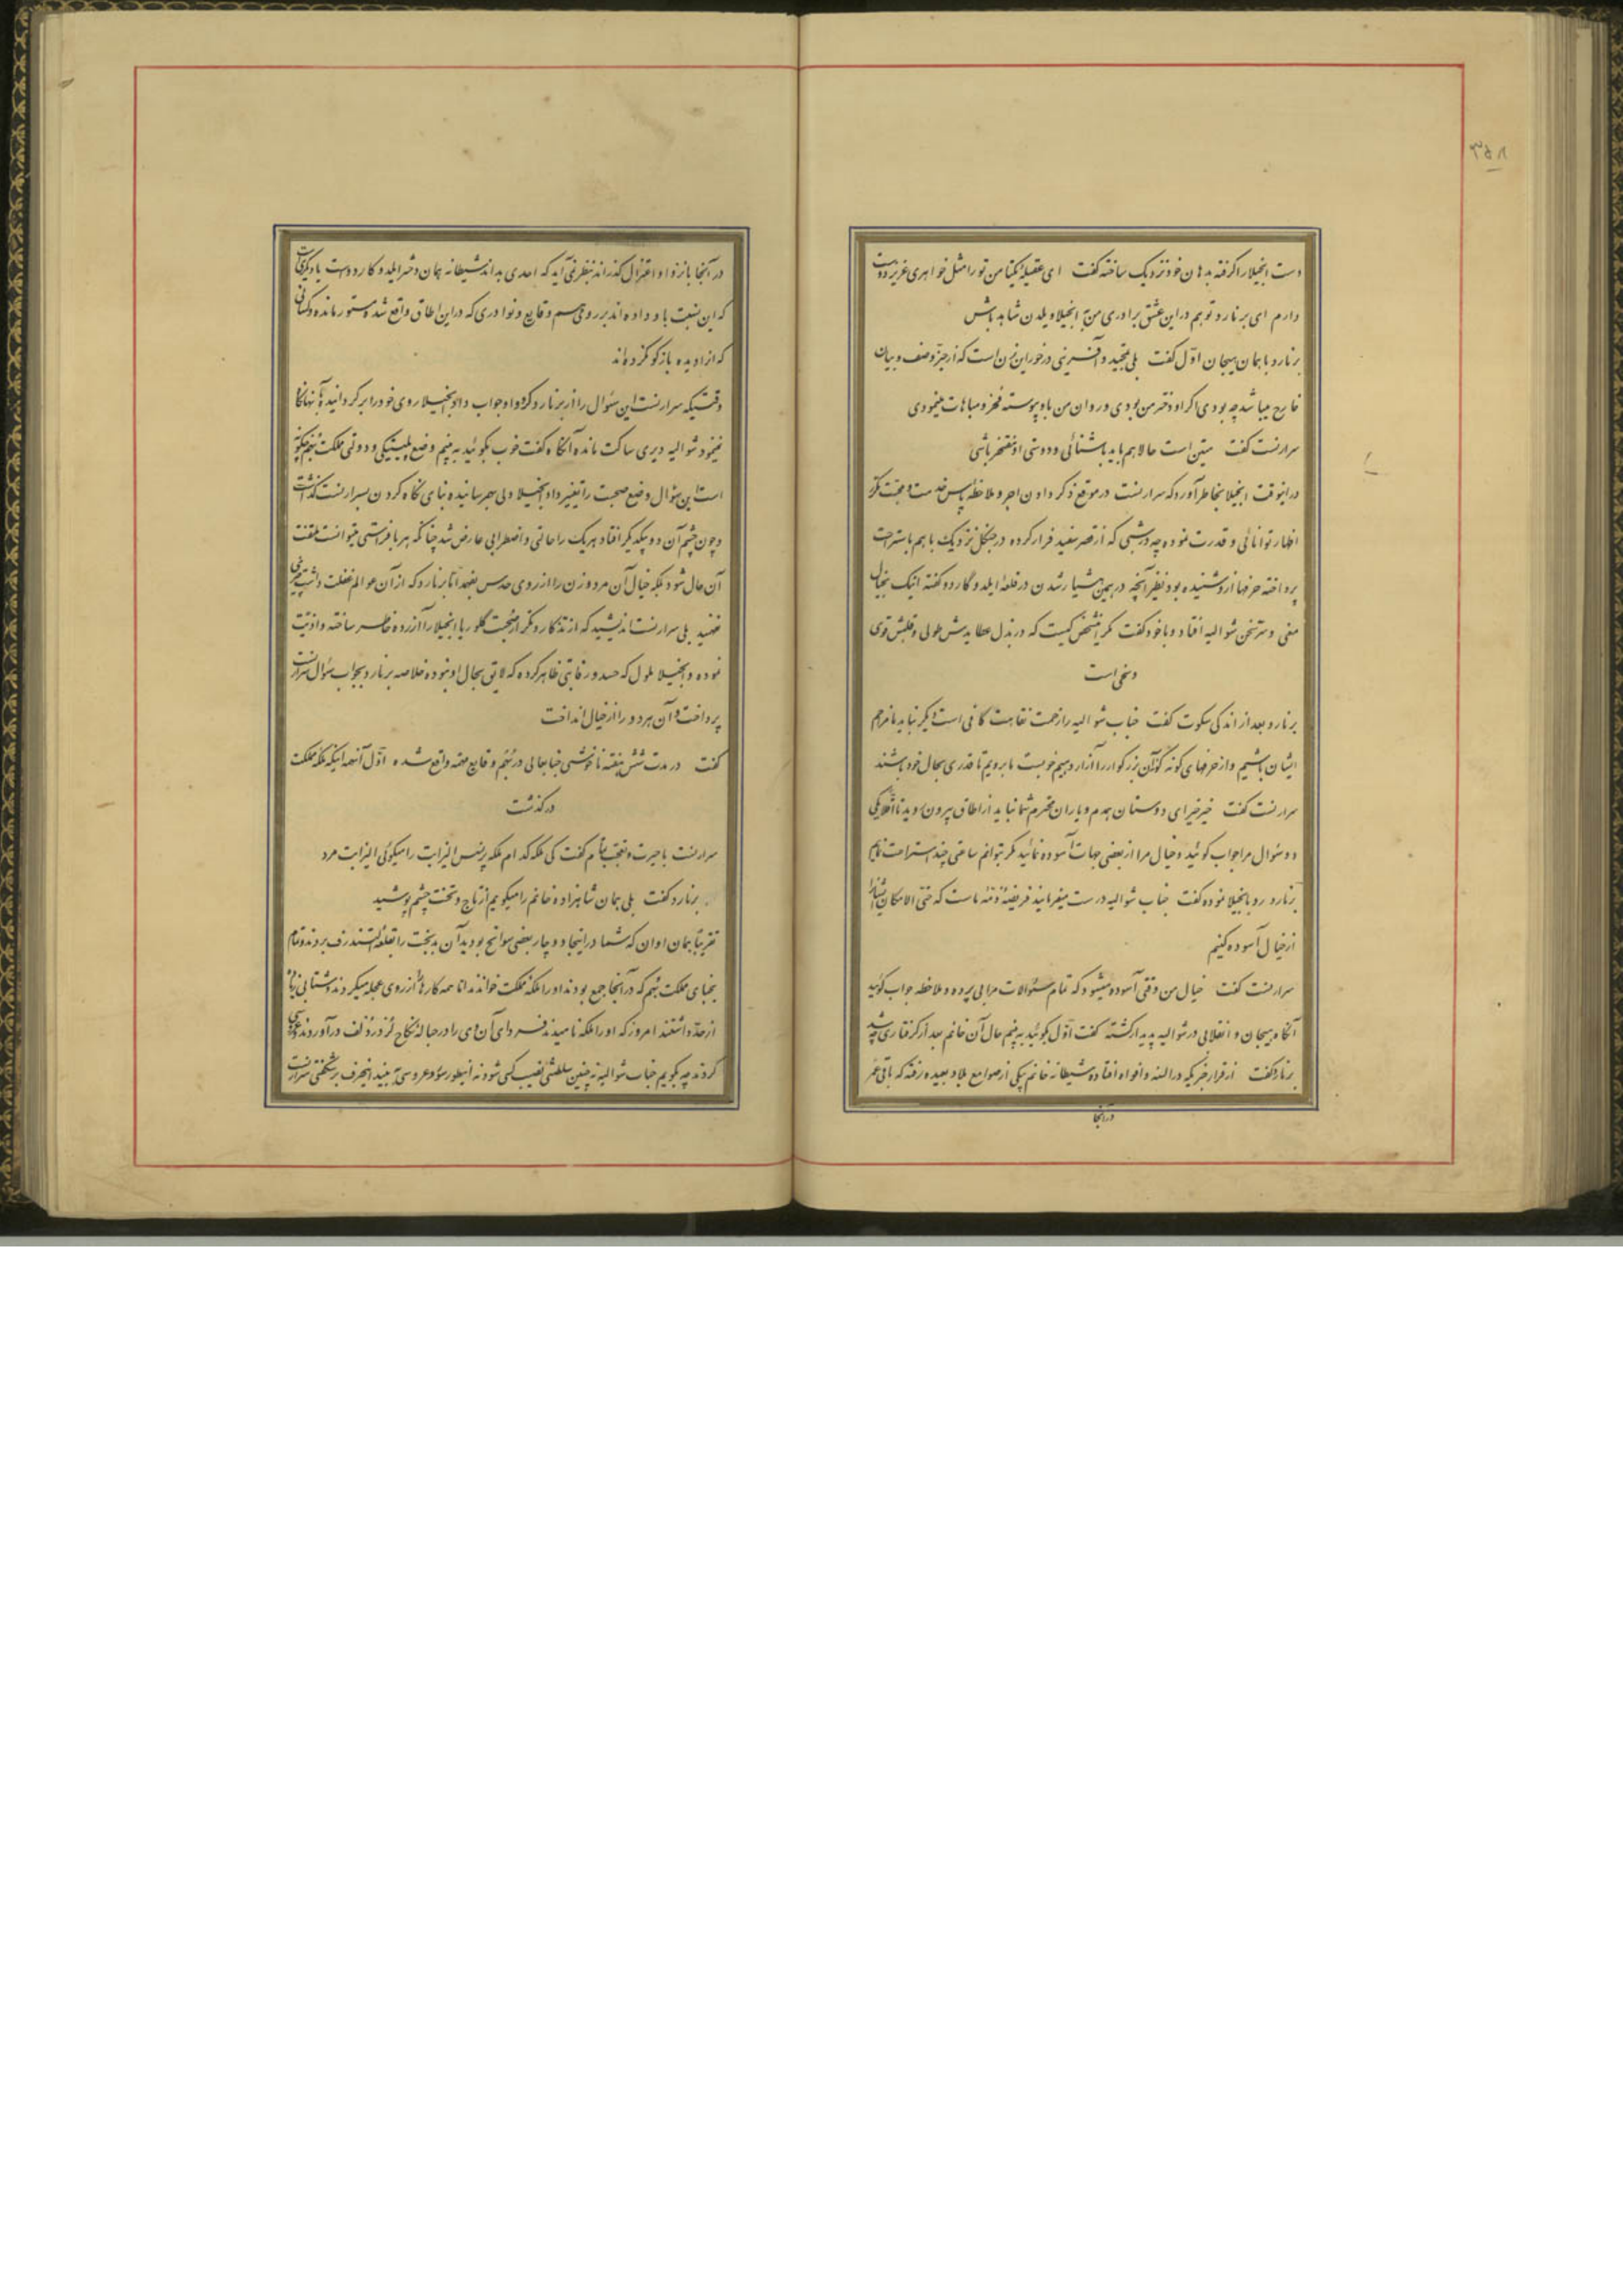 ۳۵۸
دست انجیلا را گرفته بدهان خود نزدیک ساخته گفت ای عقیله یکتا من تو را مثل خواهری عزیز دوست
دارم ای برنارد تو هم در این عشق برادری من به انجیلا ویلدن شاهد باش
برنارد با همان هیجان اول گفت بلی تمجید و آفرینی در خور این زن است که از حیز وصف و بیان
خارج میباشد چه بودی اگر او دختر من بودی و روان من باو پیوسته فخر و مباهات مینمودی
سرارنست گفت متین است حالا هم باید باشنائی و دوستی او مفتخر باشی
در اینوقت انجیلا بخاطر آورد که سرارنست در موقع ذکر دادن اجر و ملاحظه پاس خدمت و محبت مکرر
اظهار توانائی و قدرت نموده چه در شبی که از قصر سفید فرار کرده در جنگل نزدیک با هم باستراحت
پرداخته حرفها از او شنیده بود نظیر آنچه در همین هشیار شدن در قلعه ایلد و گارد و گفته اینک بخیال
معنی و سر سخن شوالیه افتاد و با خود گفت مگر این شخص کیست که در بذل عطا یدش طولی و قلبش قوی
و سخی است
برنارد بعد از اندکی سکوت گفت جناب شوالیه را زحمت نقاهت کافی است دیگر نباید ما مزاحم
ایشان باشیم و از حرفهای گونه گون آن بزرگوار را آزار دهیم خوبست ما برویم تا قدری بحال خود باشند
سرارنست گفت خیر خیر ای دوستان همدم و یاران محترم شما نباید از اطاق بیرون روید تا اقلا یکی
دو سئوال مرا جواب گوئید و خیال مرا از بعضی جهات آسوده نمائید مگر بتوانم ساعتی چند استراحت نمایم
برنارد رو بانجیلا نموده گفت جناب شوالیه درست میفرمایند فریضه ذمه ماست که حتی الامکان ایشانرا
از خیال آسوده کنیم
سرارنست گفت خیال من وقتی آسوده میشود که تمام سئوالات مرا بی پرده و ملاحظه جواب گوئید
آنگاه هیجان و انقلابی در شوالیه پدیدار گشته گفت اول بگوئید ببینم حال آن خانم بعد از گرفتاری چه شد
برنارد گفت از قرار خبریکه در السنه و افواه افتاده شیطانه خانم بیکی از صوامع بلاد بعیده رفته که باقی عمر
در آنجا
در آنجا بانزوا و اعتزال گذراند بنظر نمی آید که احدی بداند شیطانه همان دختر ایلد و گارد و است یا دیگری است
که این نسبت باو داده اند بر روی هم رفته وقایع و نوادری که در این اطاق واقع شد مستور مانده و کسانی
که از او دیده بازگو نکرده اند
وقتیکه سرارنست این سئوال را از برنارد کرد و او جواب داد انجیلا روی خود را برگردانید بآنها نگاه
نمینمود شوالیه دیری ساکت مانده آنگاه گفت خوب بگوئید ببینم وضع پلیتیکی و دولتی مملکت بُهم چگونه
است این سؤال وضع صحبت را تغییر داد انجیلا دلی بهم رسانیده بنای نگاه کردن بسرارنست گذاشت
و چون چشم آن دو بیکدیگر افتاد هر یک را حالتی و اضطرابی عارض شد چنانکه هر با فراستی میتوانست ملتفت
آن حال شود بلکه خیال آن مرد و زن را از روی حدس بفهمد اما برنارد که از آن عوالم غفلت داشت چیزی
نفهمید بلی سرارنست اندیشید که از تذکار و تکرار صحبت گلوریا انجیلا را آزرده خاطر ساخته و اذیت
نموده و انجیلا ملول که حسد و رقابتی ظاهر کرده که لایق بحال او نبوده خلاصه برنارد بجواب سؤال سرارنست
پرداخت و آن هر دو را از خیال انداخت
گفت در مدت شش هفته ناخوشی جنابعالی در بُهم وقایع مهمه واقع شده اول آنها اینکه ملکه مملکت
درگذشت
سرارنست با حیرت و تعجب تمام گفت کی ملکه کدام ملکه پرنسس الیزابت را میگوئی الیزابت مرد
برنارد گفت بلی همان شاهزاده خانم را میگویم از تاج و تخت چشم پوشید
تقریبا همان اوان که شما در اینجا دوچار بعضی سوانح بودید آن بدبخت را بقلعه آلتندرف بردند و تمام
نجبای مملکت بُهم که در آنجا جمع بودند او را ملکه مملکت خواندند اما همه کارها را از روی عجله میکردند و شتابی زیاد
از حد داشتند امروز که او را ملکه نامیدند فردای آن وی را در حباله نکاح لرد رُدُلف در آوردند عروسی
کردند چه بگویم جناب شوالیه نه چنین سلطنتی نصیب کسی شود نه اینطور سور و عروسی ببیند اینحرف بر شگفتی سرارنست